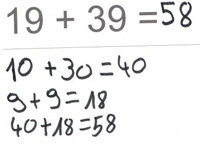 19 + 39 = 58
10 + 30 = 40
9 + 9 = 18
40 + 18 = 58